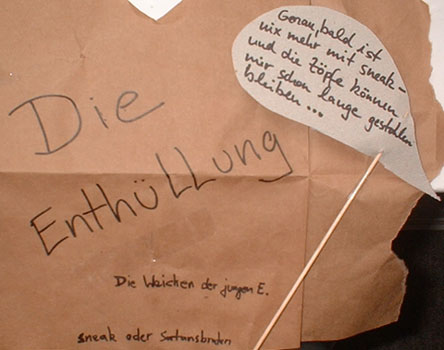 Goran, bald ist
nix mehr mit sneak-
und die Zöpfe können
mir schon lange gestohlen
bleiben ...
Die
EnthüLLung
Die Weichen der jungen E.
sneak oder Satansbraten